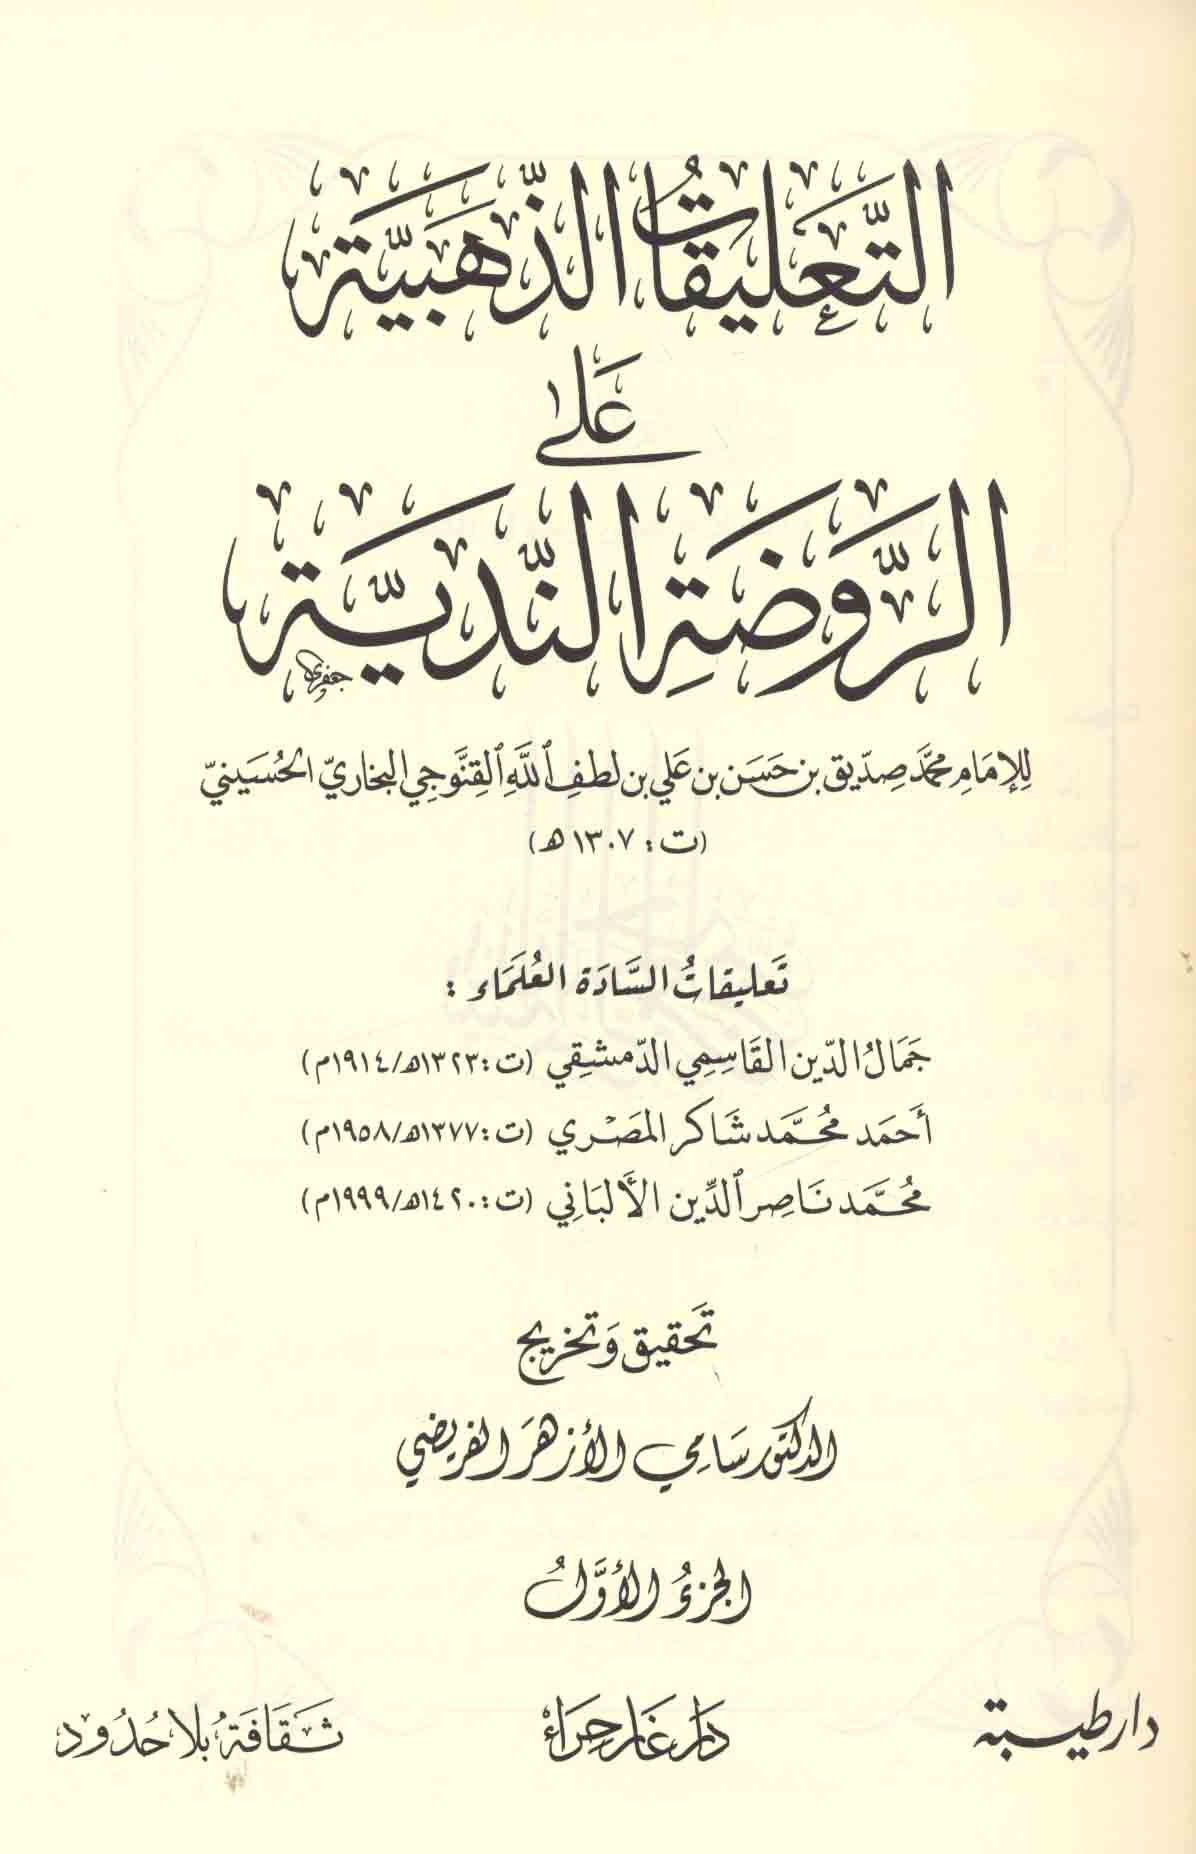 التَّعليقاتُ الذَّهَبيَّة
عَلى
الرَّوضَةِ النَّدِيَّة
جعفري
لِلإمَامِ محمَّد صِدّيق بن حَسَن بن عَلي بن لطف ٱللَّهِ ٱلقِنَّوجي البخاريّ الحُسَينيّ
(ت: ١٣٠٧هـ)
تَعليقاتُ السَّادَة العُلَمَاء:
جَمَالُ الدّين القَاسِمِي الدّمشقِي (ت: ١٣٢٣هـ/١٩١٤م)
أحَمَد محُمَّد شَاكر المصَري (ت: ١٣٧٧هـ/١٩٥٨م)
محُمَّد نَاصِر ٱلدِّين الألبَاني (ت: ١٤٢٠هـ/١٩٩٩م)
تَحقيق وَتخريج
الدكتور سَامي الأزهَر الفريضي
الجزءُ الأوَّلُ
دار طيبة
دَار غَار حِرَاءْ
ثَقَافَةُ بلا حُدُود